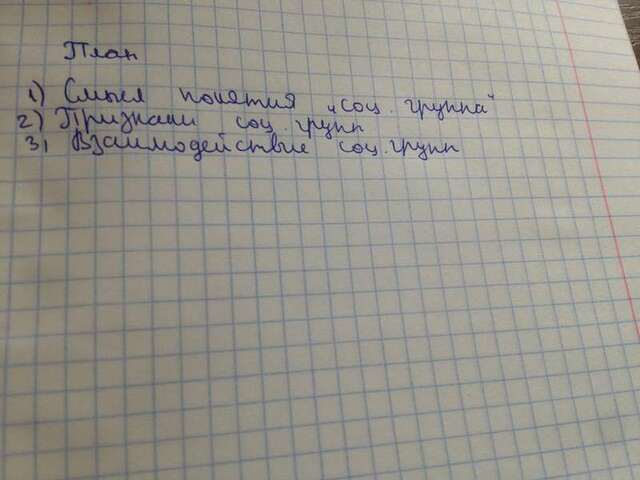 План
1) Смысл понятия „соц. группа"
2) Признаки соц. групп
3) Взаимодействие соц. групп